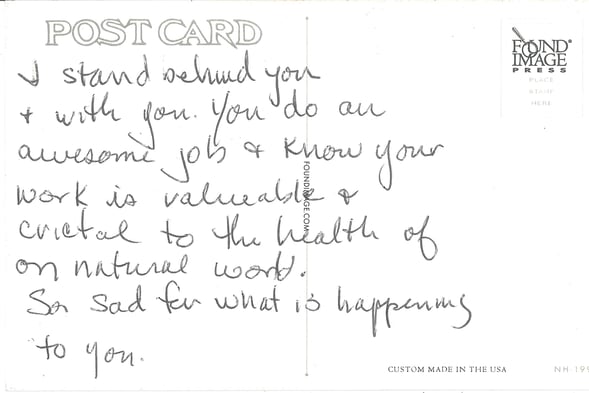 POST CARD
I stand behind you
+ with you. You do an
awesome job & know your
work is valueable &
crictal to the health of
on natural world.
So sad for what is happening
to you.
FOUND
IMAGE
PRESS
PLACE
STAMP
HERE
FOUNDIMAGE.COM
CUSTOM MADE IN THE USA